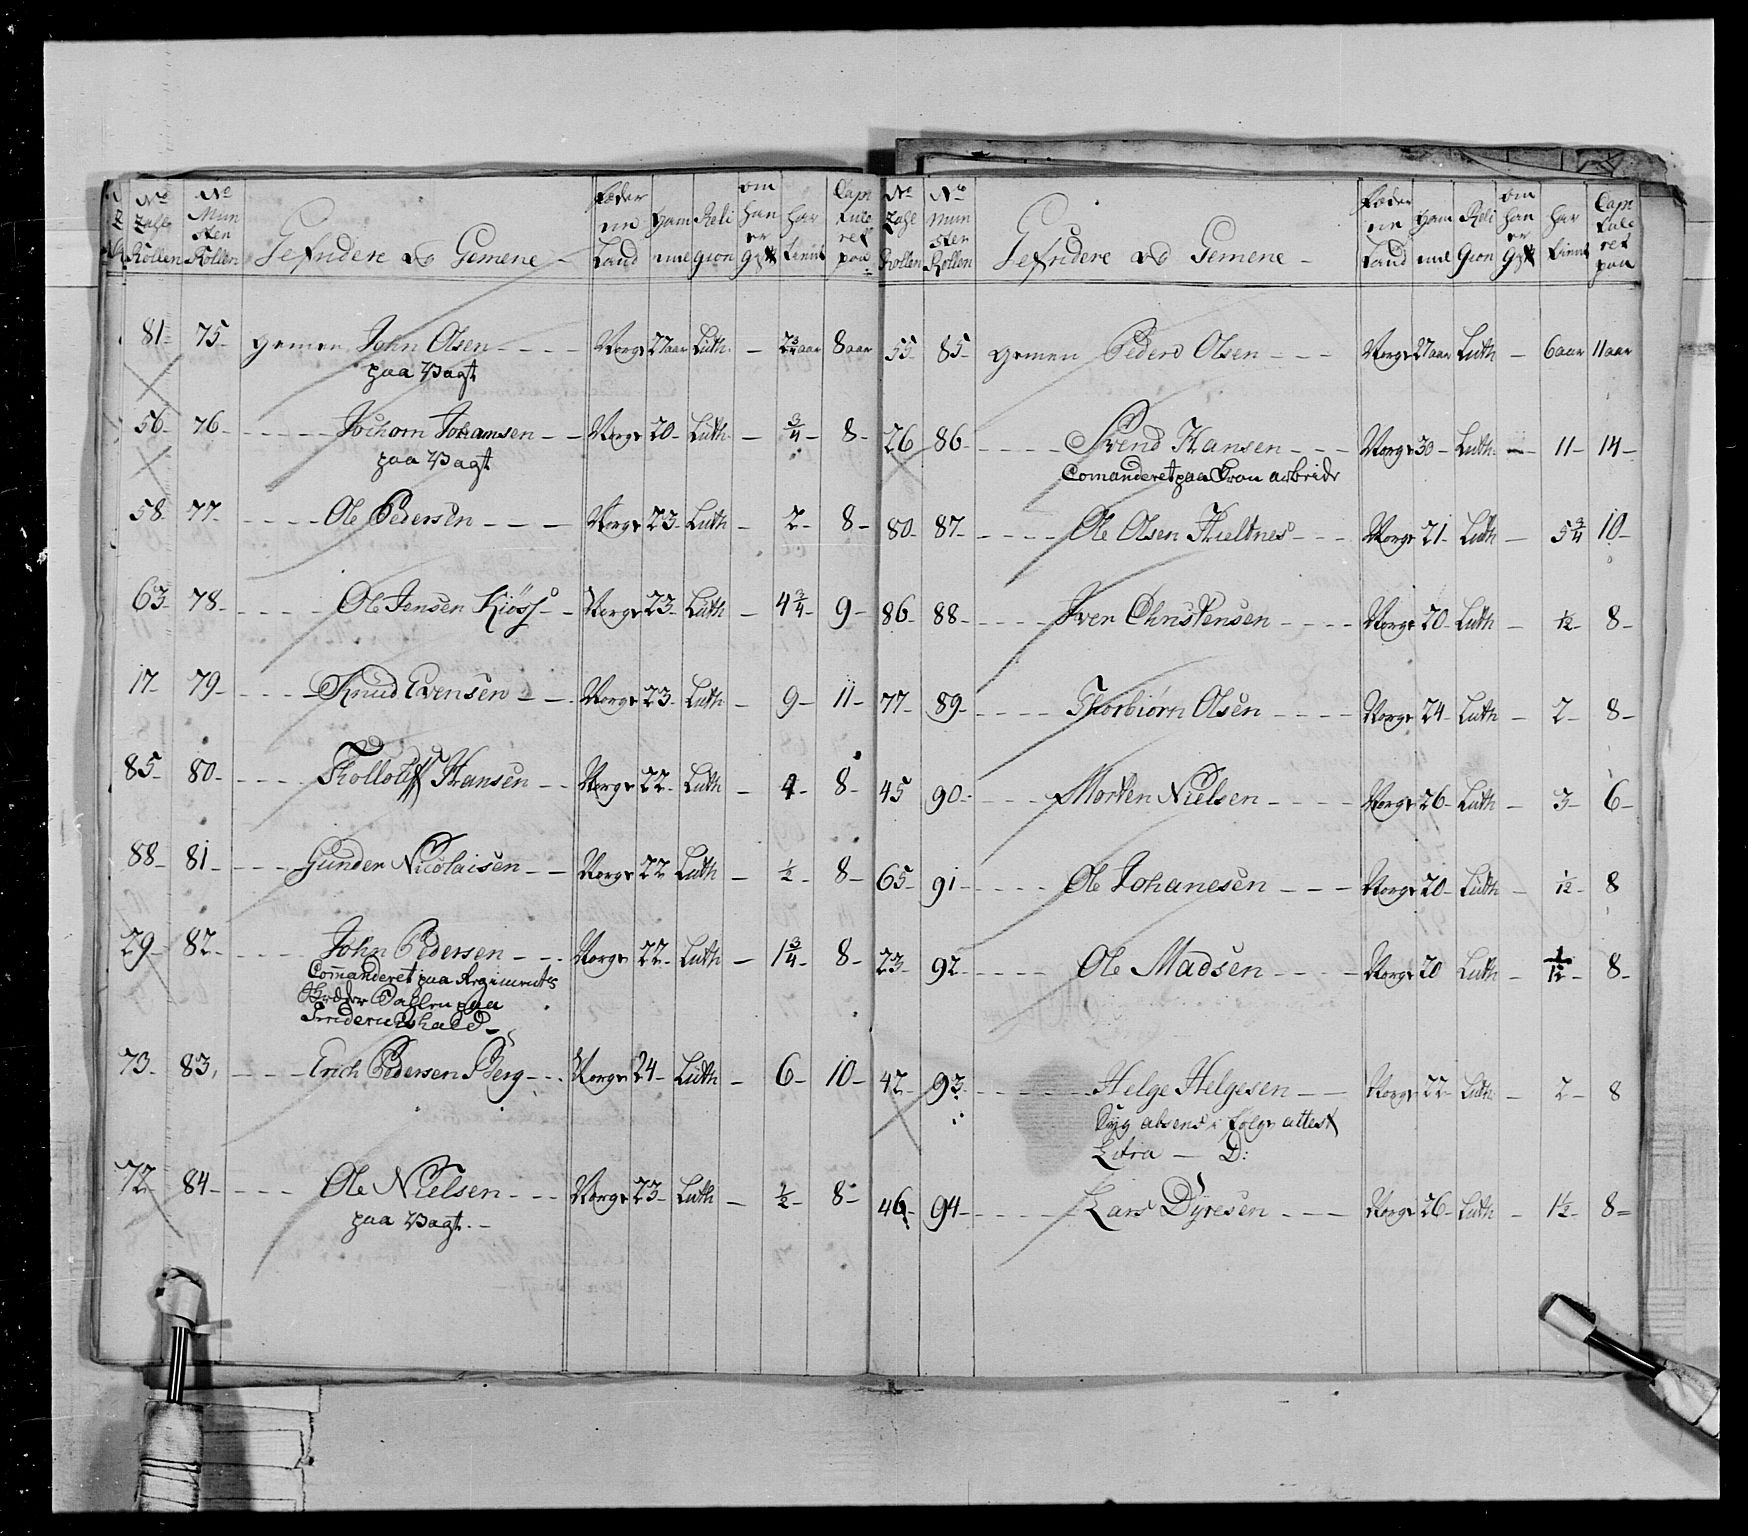 No Zahl Rollen | No Mun ster Rollen | Gefridere og Gemene | Føder ne Land | ham me | Reli gion | om han er gift | har tient | Capi tule ret paa
81 75 gemen John Olsen Norge 27 aar Luth. – 2 3/4 aar 8 aar
paa Vagt
56 76 Jochom Johansen Norge 20 Luth. – 3/4 8
paa Vagt
58 77 Ole Pedersen Norge 23 Luth – 2 8
63 78 Ole Jensen Norge 23 Luth – 4 3/4 9
17 79 Knud Evensen Norge 23 Luth – 9 11
85 80 Thollouff Hansen Norge 22 Luth – 4 8
88 81 Gunder Nicolaisen Norge 22 Luth – 1/2 8
29 82 John Pedersen Norge 22 Luth – 1 3/4 8
Comanderet paa Regiments
paa
Friderichshald
73 83 Erich Pedersen Berg Norge 24 Luth – 6 10
72 84 Ole Nielsen Norge 23 Luth – 1/2 8
paa Vagt.
No Zahl Rollen | No Mun ster Rollen | Gefridere og Gemene | Føder ne Land | ham me | Reli Gion | om han er gift | har tient | Capi tule ret paa
55 85 gemen Peder Olsen Norge 27 aar Luth – 6 aar 11 aar
26 86 Svend Hansen Norge 30 Luth. – 11 14
Comanderet paa arbeide
80 87 Ole Olsen Norge 21 Luth – 5 3/4 10
86 88 Iver Christensen Norge 20 Luth – 1/2 8
77 89 Thorbiørn Olsen Norge 24 Luth – 2 8
45 90 Morten Nielsen Norge 26 Luth – 3 6
65 91 Ole Johanesen Norge 20 Luth – 1/2 8
23 92 Ole Madsen Norge 20 Luth – 1/12 8
42 93 Helge Helgesen Norge 22 Luth – 2 8
Syg absens i følge attest
Litra – D:
46 94 Lars Dyresen Norge 26 Luth – 1 1/2 8